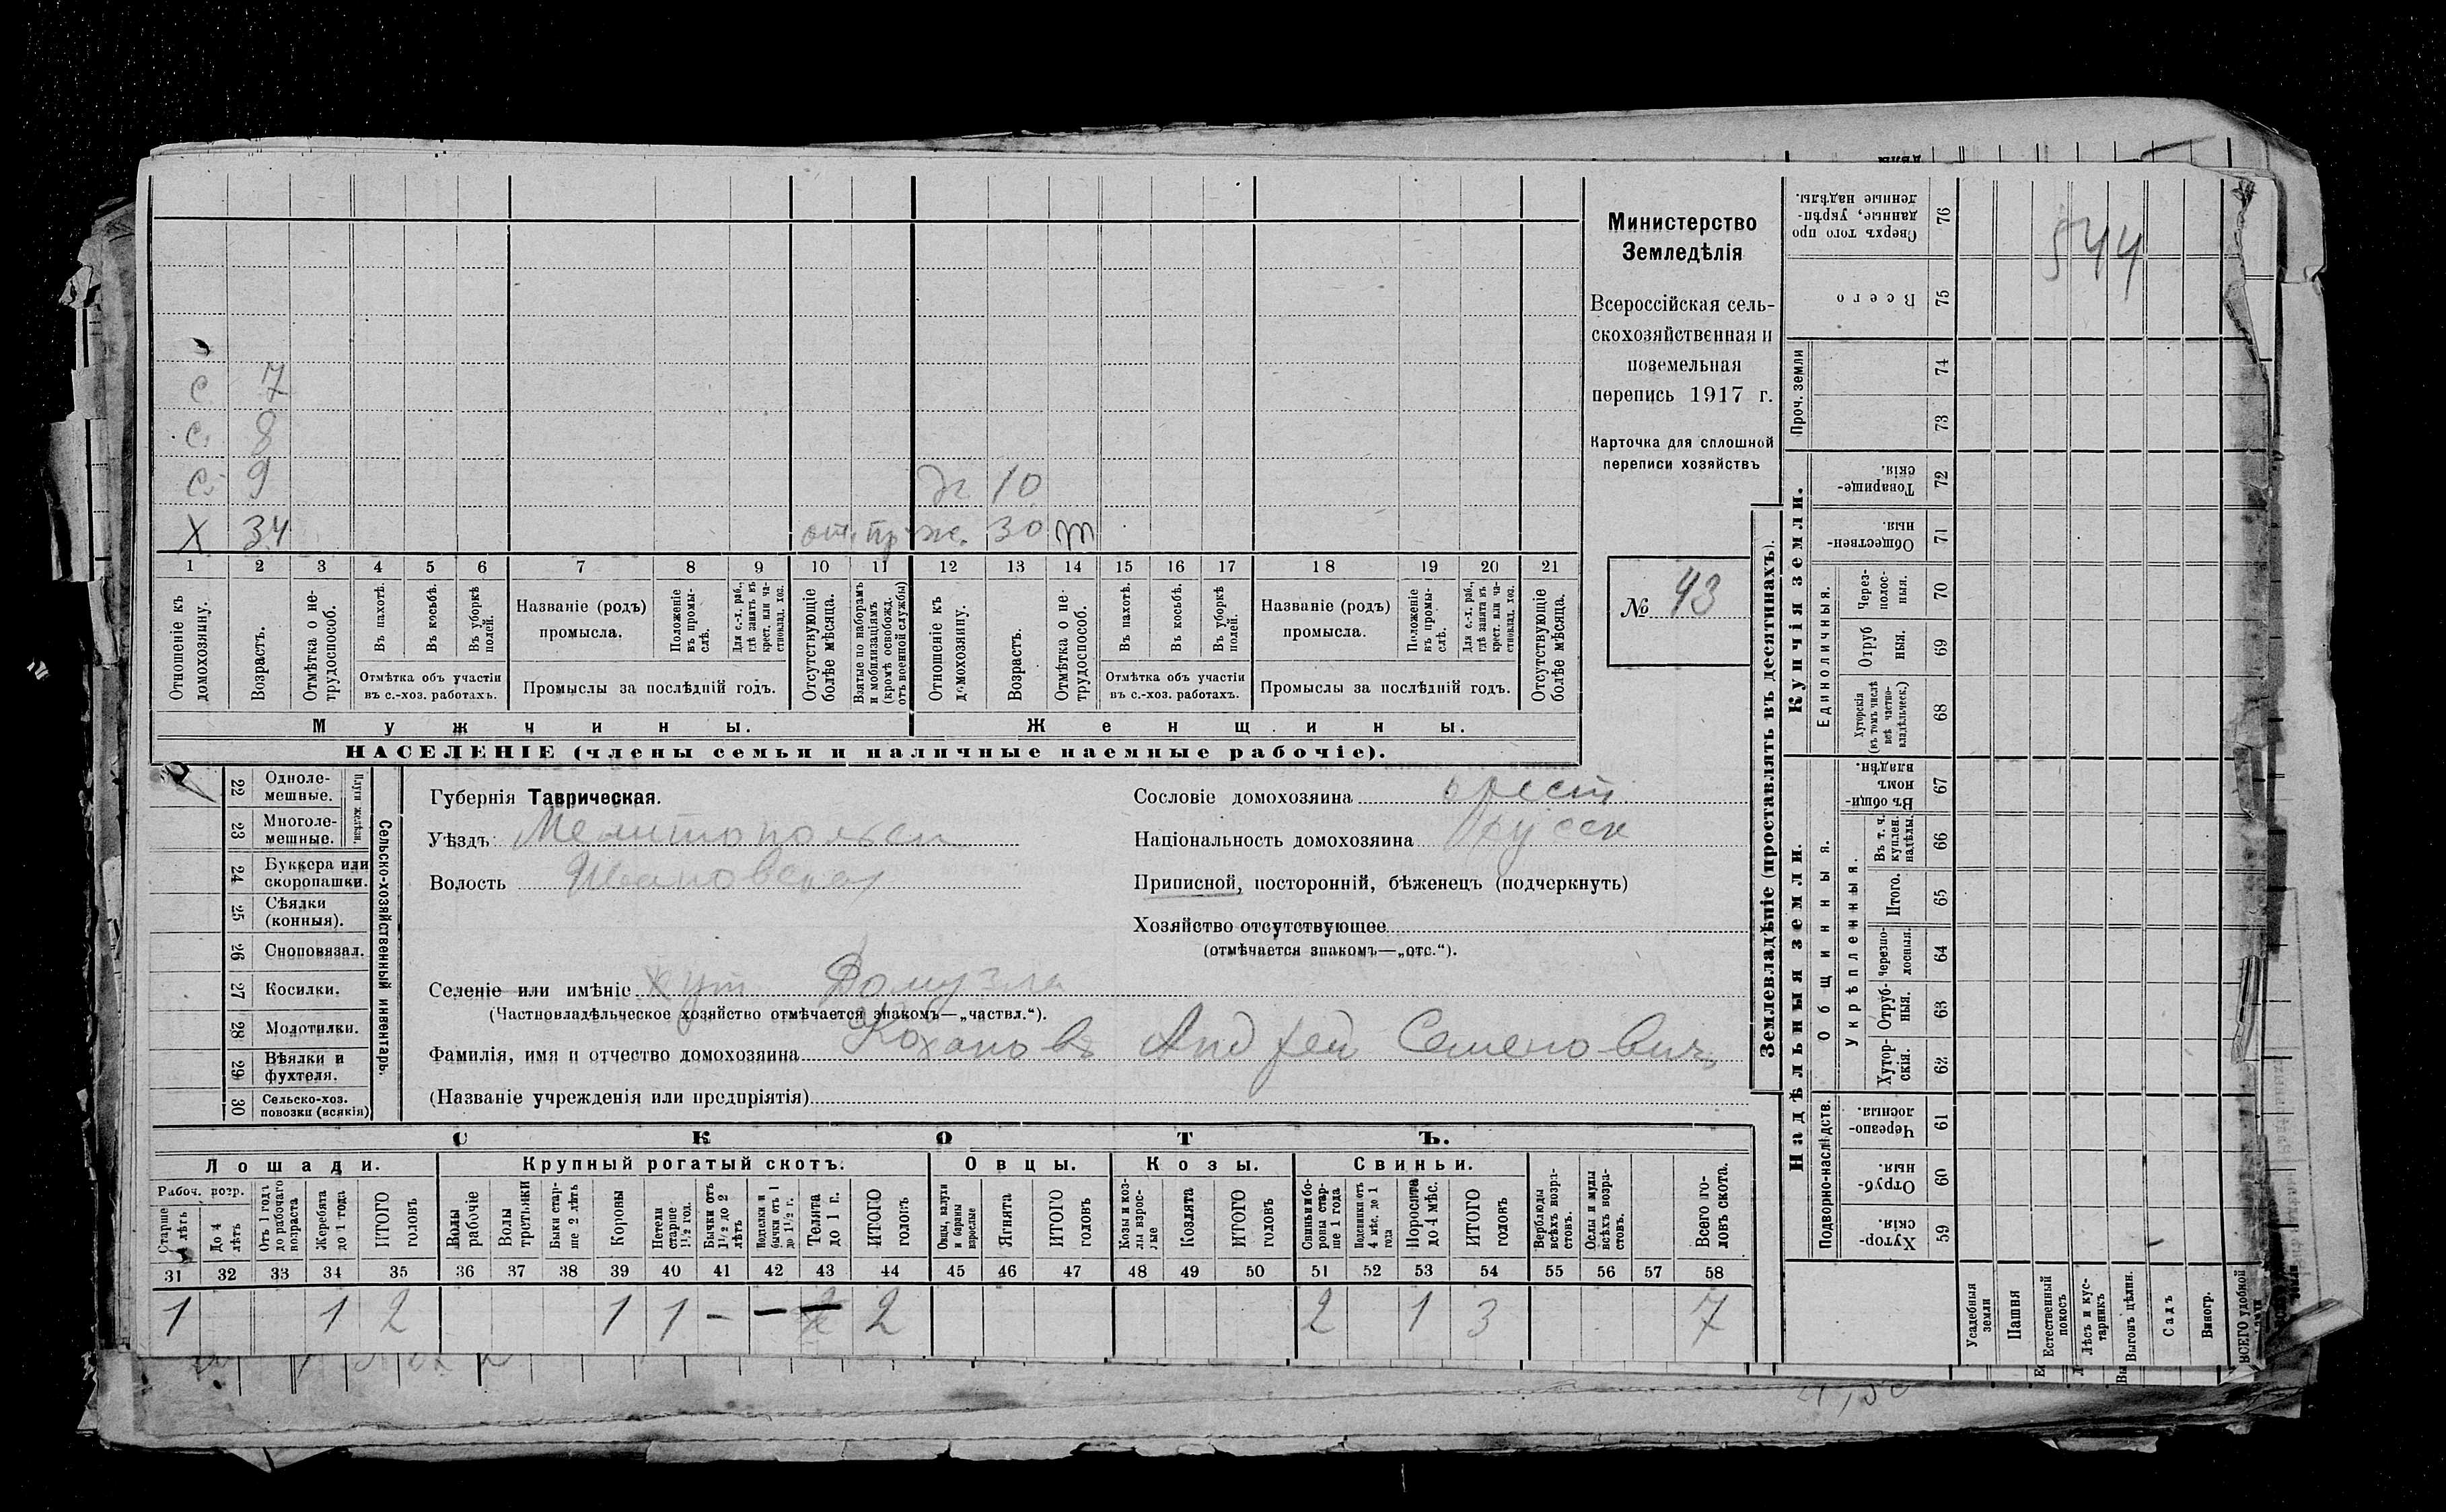 с 7
с. 8
с. 9 дг 10
х 34 от. пр ж. 30 m
1 2 3 4 5 6 7 8 9 10 11 12 13 14 15 16 17 18 19 20 21
Отношеніе къ домохозяину.
Возрастъ.
Отмѣтка о не-трудоспособ.
Въ пахотѣ.
Въ косьбѣ.
Въ уборкѣ полей.
Отмѣтка объ участіи
въ с.-хоз. работахъ.
Названіе (родъ)
промысла.
Положеніе въ промы-слѣ.
Для с.-х. раб., гдѣ занятъ въ крест. или ча-стновлад. хоз.
Промыслы за послѣдній годъ.
Отсутствующіе болѣе мѣсяца.
Взятые по наборамъ и мобилизаціямъ (кромѣ освобожд. отъ военной службы)
Отношеніе къ домохозяину.
Возрастъ.
Отмѣтка о не-трудоспособ.
Въ пахотѣ.
Въ косьбѣ.
Въ уборкѣ полей.
Отмѣтка объ участіи
въ с.-хоз. работахъ.
Названіе (родъ)
промысла.
Положеніе въ промы-слѣ.
Для с.-х. раб., гдѣ занята въ крест. или ча-стновлад. хоз.
Промыслы за послѣдній годъ.
Отсутствующіе болѣе мѣсяца.
Мужчины. Женщины.
НАСЕЛЕНІЕ (члены семьи и наличные наемные рабочіе).
Министерство
Земледѣлія
Всероссійская сель-
скохозяйственная и
поземельная
перепись 1917 г.
Карточка для сплошной
переписи хозяйствъ
№ 43
22 Одноле-мешные.
23 Многоле-мешные.
Плуги желѣзн.
24 Буккера или скоропашки.
25 Сѣялки (конныя).
26 Сноповязал.
27 Косилки.
28 Молотилки.
29 Вѣялки и фухтеля.
30 Сельско-хоз. повозки (всякія)
Сельско-хозяйственный инвентарь.
Губернія Таврическая.
Уѣздъ Мелитопольск
Волость Ивановская
Сословіе домохозяина крест
Національность домохозяина Русск
Приписной, посторонній, бѣженецъ (подчеркнуть)
Хозяйство отсутствующее
(отмѣчается знакомъ—„отс.“).
Селеніе или имѣніе хут Домузла
(Частновладѣльческое хозяйство отмѣчается знакомъ—„частвл.“).
Фамилія, имя и отчество домохозяина Кохановъ Андрей Семеновичъ
(Названіе учрежденія или предпріятія)
СКОТЪ.
Лошади. Крупный рогатый скотъ. Овцы. Козы. Свиньи.
Рабоч. возр.
Старше 4 лѣтъ
До 4 лѣтъ
Отъ 1 года до рабочаго возраста
Жеребята до 1 года
ИТОГО головъ
Волы рабочіе
Волы третьяки
Быки стар-ше 2 лѣтъ
Коровы
Нетели старше 1½ год.
Бычки отъ 1½ до 2 лѣтъ
Подтелки и бычки отъ 1 до 1½ г.
Телята до 1 г.
ИТОГО головъ
Овцы, валухи и бараны взрослые
Ягнята
ИТОГО головъ
Козы и коз-лы взрос-лые
Козлята
ИТОГО головъ
Свиньи и бо-ровы стар-ше 1 года
Подсвинки отъ 4 мѣс. до 1 года
Поросята до 4 мѣс.
ИТОГО головъ
Верблюды всѣхъ возра-стовъ.
Ослы и мулы всѣхъ возра-стовъ.
Всего го-ловъ скота.
31 32 33 34 35 36 37 38 39 40 41 42 43 44 45 46 47 48 49 50 51 52 53 54 55 56 57 58
1 1 2 1 1 — — — 2 2 1 3 7
Землевладѣніе (проставлять въ десятинахъ).
Надѣльныя земли. Купчія земли.
Подворно-наслѣдств.
Общинныя.
Укрѣпленныя.
Единоличныя.
Проч. земли
Сверхъ того про данные, укрѣп-ленные надѣлы. 76
Всего 75
74
73
Товарище-скія. 72
Обществен-ныя. 71
Через-полос-ныя. 70
Отруб ныя. 69
Хуторскія (въ томъ числѣ всѣ частно-владѣльческ.) 68
Въ общи-номъ владѣн. 67
Въ т. ч. куплен. надѣлы. 66
Итого. 65
Черезпо-лосныя. 64
Отруб-ныя. 63
Хутор-скія. 62
Черезпо-лосныя. 61
Отруб-ныя. 60
Хутор-скія. 59
Усадебныя земли
Пашня
Естественный покосъ
Лѣсъ и кус-тарникъ
Выгонъ цѣлин.
Садъ
Виногр.
ВСЕГО удобной
544